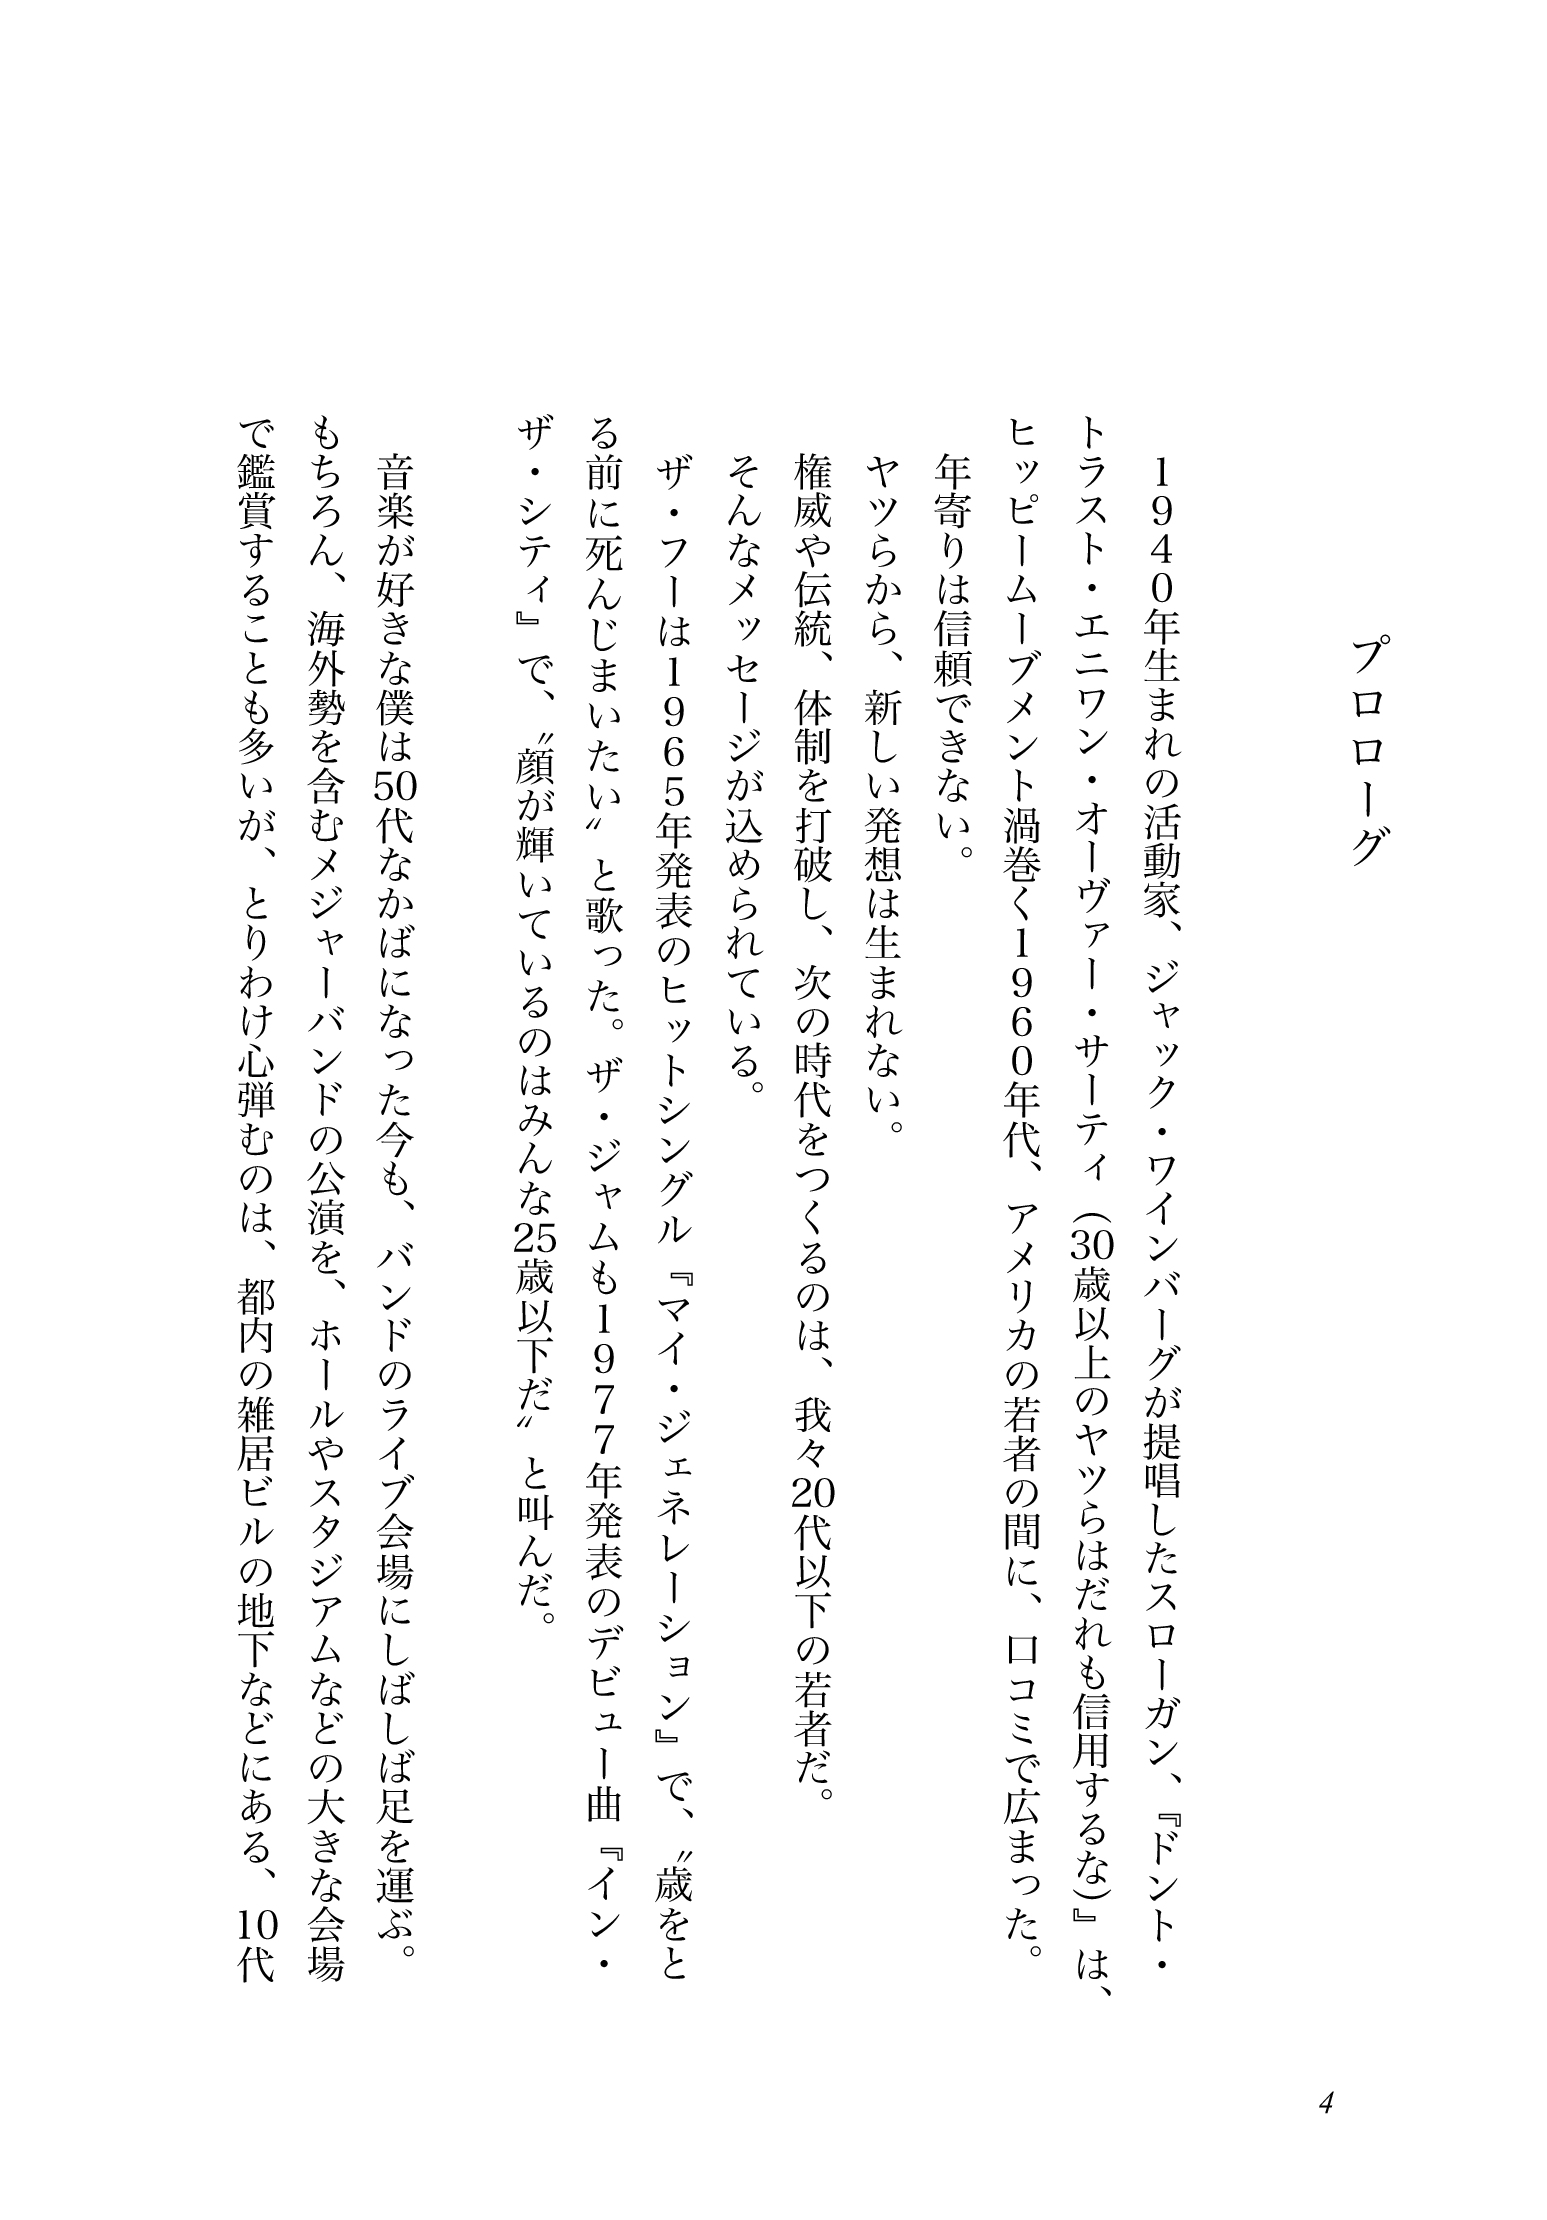 プロローグ
　1940年生まれの活動家、ジャック・ワインバーグが提唱したスローガン、『ドント・
トラスト・エニワン・オーヴァー・サーティ（30歳以上のヤツらはだれも信用するな）』は、
ヒッピームーブメント渦巻く1960年代、アメリカの若者の間に、口コミで広まった。
　年寄りは信頼できない。
　ヤツらから、新しい発想は生まれない。
　権威や伝統、体制を打破し、次の時代をつくるのは、我々20代以下の若者だ。
　そんなメッセージが込められている。
　ザ・フーは1965年発表のヒットシングル『マイ・ジェネレーション』で、〝歳をと
る前に死んじまいたい〟と歌った。ザ・ジャムも1977年発表のデビュー曲『イン・
ザ・シティ』で、〝顔が輝いているのはみんな25歳以下だ〟と叫んだ。
　音楽が好きな僕は50代なかばになった今も、バンドのライブ会場にしばしば足を運ぶ。
もちろん、海外勢を含むメジャーバンドの公演を、ホールやスタジアムなどの大きな会場
で鑑賞することも多いが、とりわけ心弾むのは、都内の雑居ビルの地下などにある、10代
4